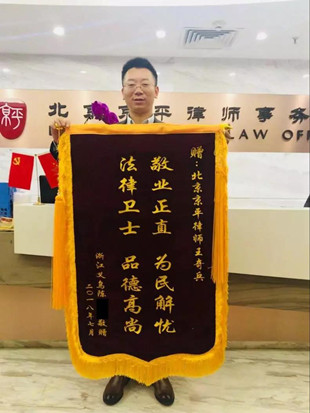 北京京平律师事务
LAW OFF
赠：北京京平律师王奇兵
敬业正直 为民解忧
法律卫士 品德高尚
浙江义乌陈 敬赠
二〇一八年七月